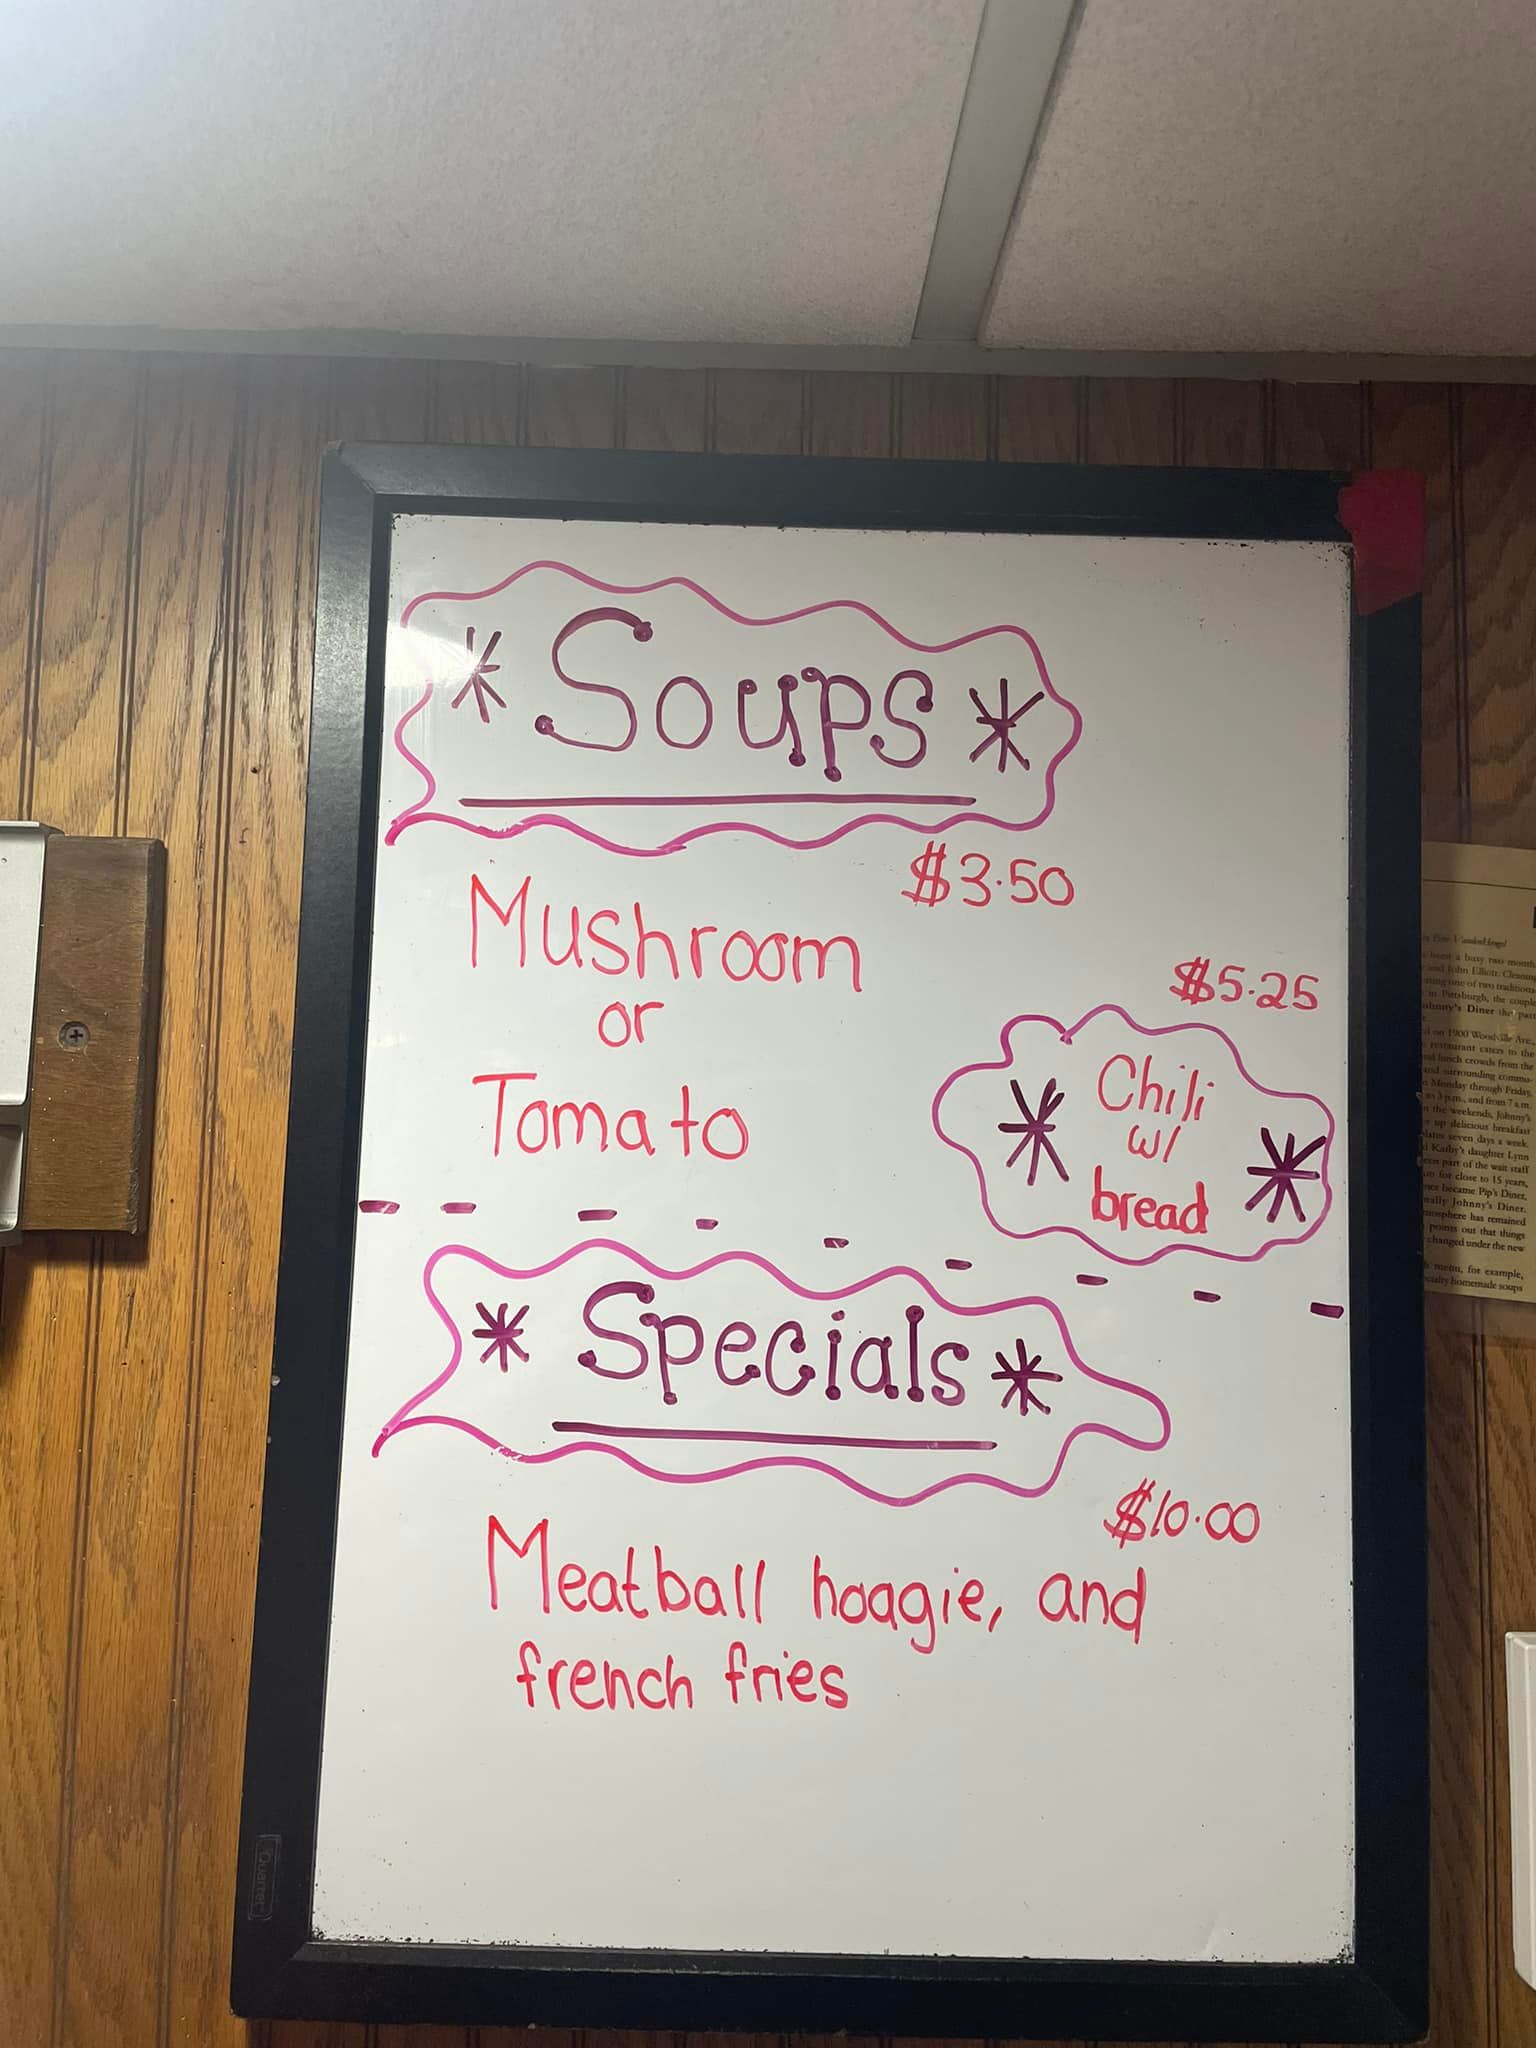 * Soups *
$3.50
Mushroom
or
Tomato
$5.25
* Chili
w/
bread *
* Specials *
$10.00
Meatball hoagie, and
french fries
Quartet
Erin VandenHengel
been a busy two month
and John Elliott. Cleaning
one of two tradition
in Pittsburgh, the couple
Johnny's Diner the past
on 1900 Woodville Ave.,
restaurant caters to the
lunch crowds from the
and surrounding commu-
Monday through Friday,
3 p.m., and from 7 a.m.
the weekends, Johnny's
up delicious breakfast
plates seven days a week.
Kathy's daughter Lynn
been part of the wait staff
for close to 15 years,
became Pip's Diner,
Johnny's Diner.
atmosphere has remained
points out that things
changed under the new
menu, for example,
specialty homemade soups